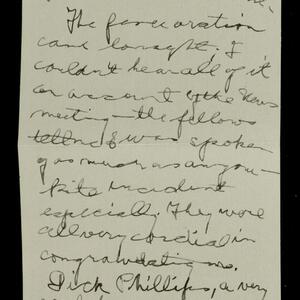 The farce oration
came tonight. I
couldn't hear all of it
on account of the News
meeting — the fellows
tell me I was spoken
of as much as anyone —
Kite incident
especially. They were
all very cordial in
congratulating me.
Dick Phillips, a very